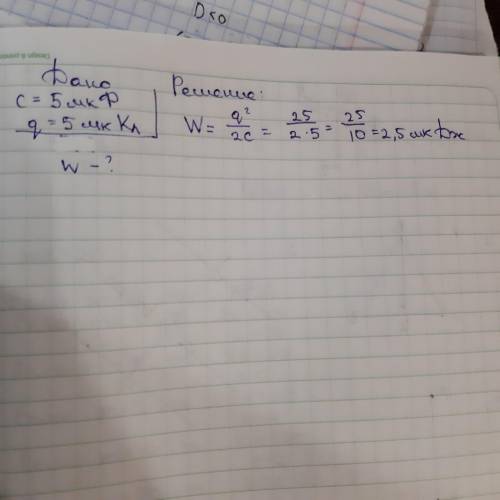 D50
Дано
C = 5 мкФ
q = 5 мкКл
W - ?
Решение:
W = q²/2C = 25/2·5 = 25/10 = 2,5 мкДж